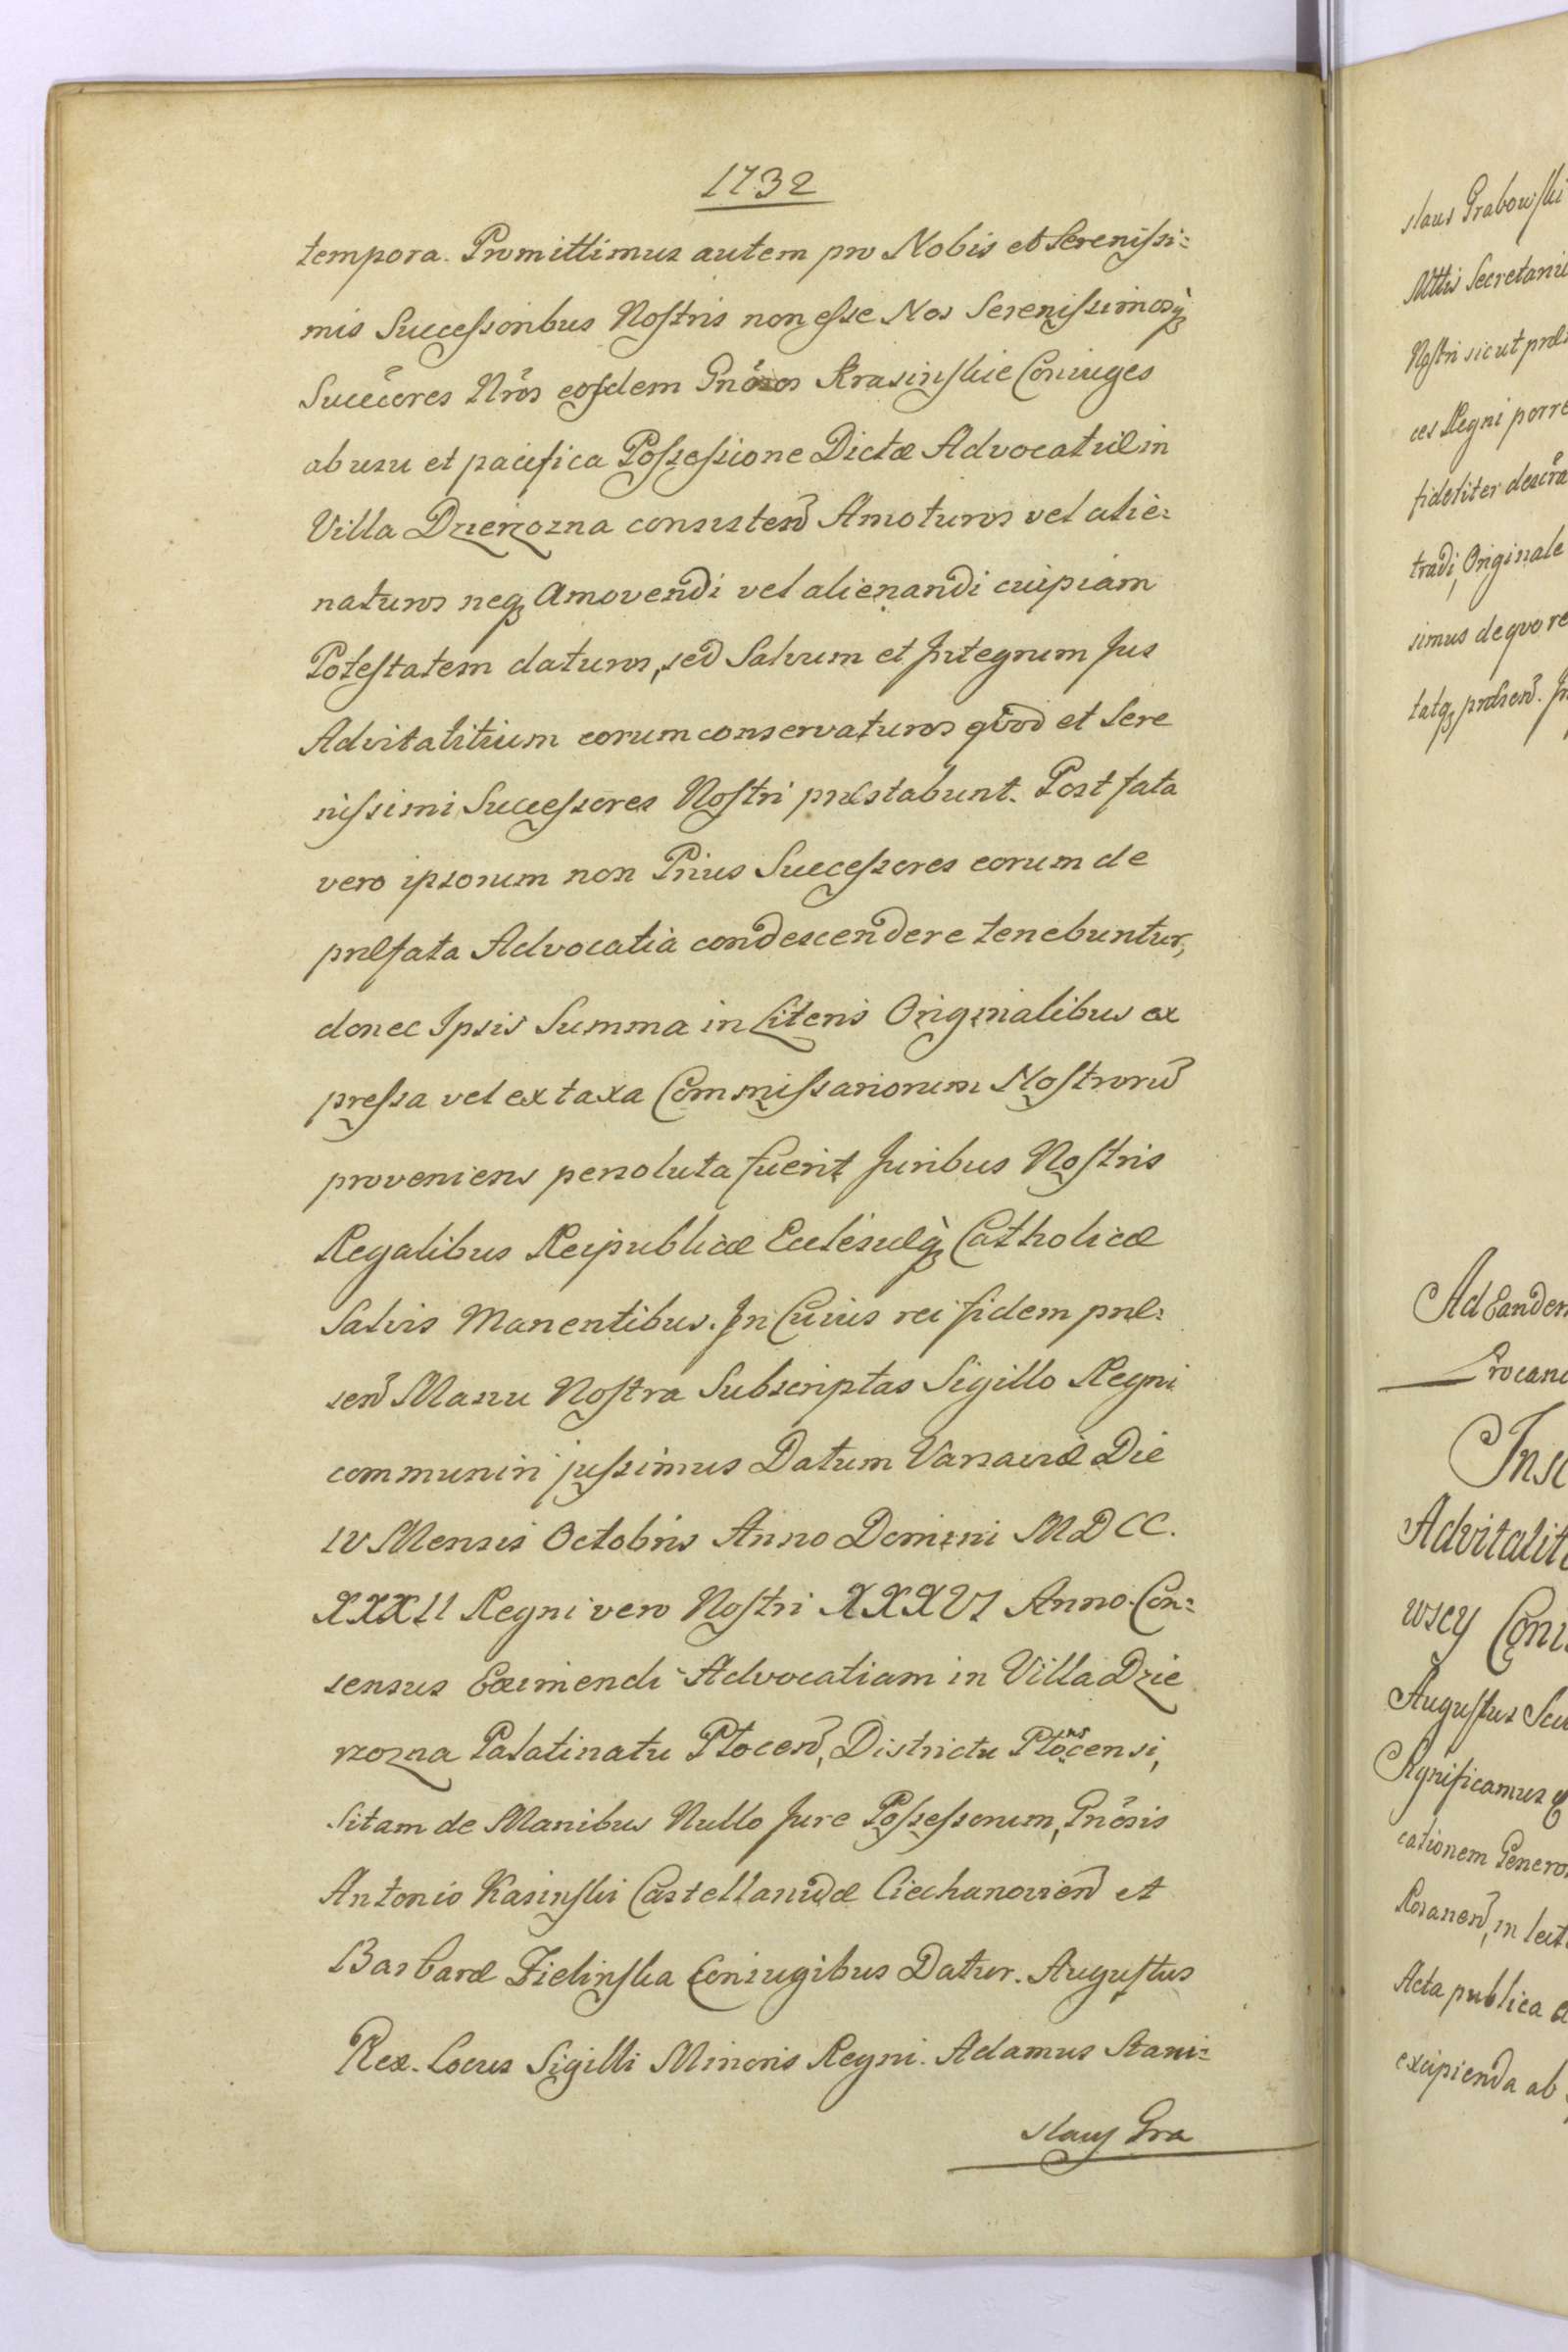 1732
tempora. Promittimus autem pro Nobis et Sereniſsi=
mis Succeſsoribus Noſtris non eſse Nos Sereniſsimosq̀ʒ
Succ̃ores Nr̃os eoſdem Gñosos Kraſinſkie Coniuges
ab usu et pacifica Poſseſsione Dictæ Advocatiæ in
Villa Dzierzozna consisteñ Amoturos vel alie=
naturos neqʒ Amovendi vel alienandi cuipiam
Poteſtatem daturos, sed Salvum et Integrum Jus
Advitalitium eorum conservaturos qvod et Sere
niſsimi Succeſsores Noſtri præstabunt. Post fata
vero ipsorum non Prius Succeſsores eorum de
præfata Advocatià condescendere tenebuntur,
donec Ipsis Summa in Literis Originalibus ex
preſsa vel ex taxa Commiſsariorum Noſtrorũ
proveniens persoluta fuerit Juribus Noſtris
Regalibus Reipublicæ Ecclesiæq̀ʒ Catholicæ
Salvis Manentibus. In Cuius rei fidem præ=
señ Manu Noſtra Subscriptas Sigillo Regni
communiri juſsimus Datum Varsaviæ Die
IV Mensis Octobris Anno Domini MDCC.
XXXII Regni vero Noſtri XXXVI Anno. Con=
sensus Eximendi Advocatiam in Villa Dzie
rzozna Palatinatu Ploceñ, Districtu Plocensi,
Sitam de Manibus Nullo Jure Poſseſsorum, Gñosis
Antonio Kasinſki Castellanidæ Ciechanovieñ et
Barbaræ Zielinſka Coniugibus Datur. Auguſtus
Rex. Locus Sigilli Minoris Regni. Adamus Stani=
slauſ Gra
slaus Grabowſki
Mttis Secretariu
Noſtri sicut præs
ces Regni porre
fideliter descr̃a
tradi, Originale
simus de quo re
tatqʒ præseñ. In
Ad Eandem
Procanc
Inſc
Advitalit
wscy Coni
Auguſtus Secu
Significamus
cationem Genero
Rosaneñ, in lect
Acta publica
excipienda ab